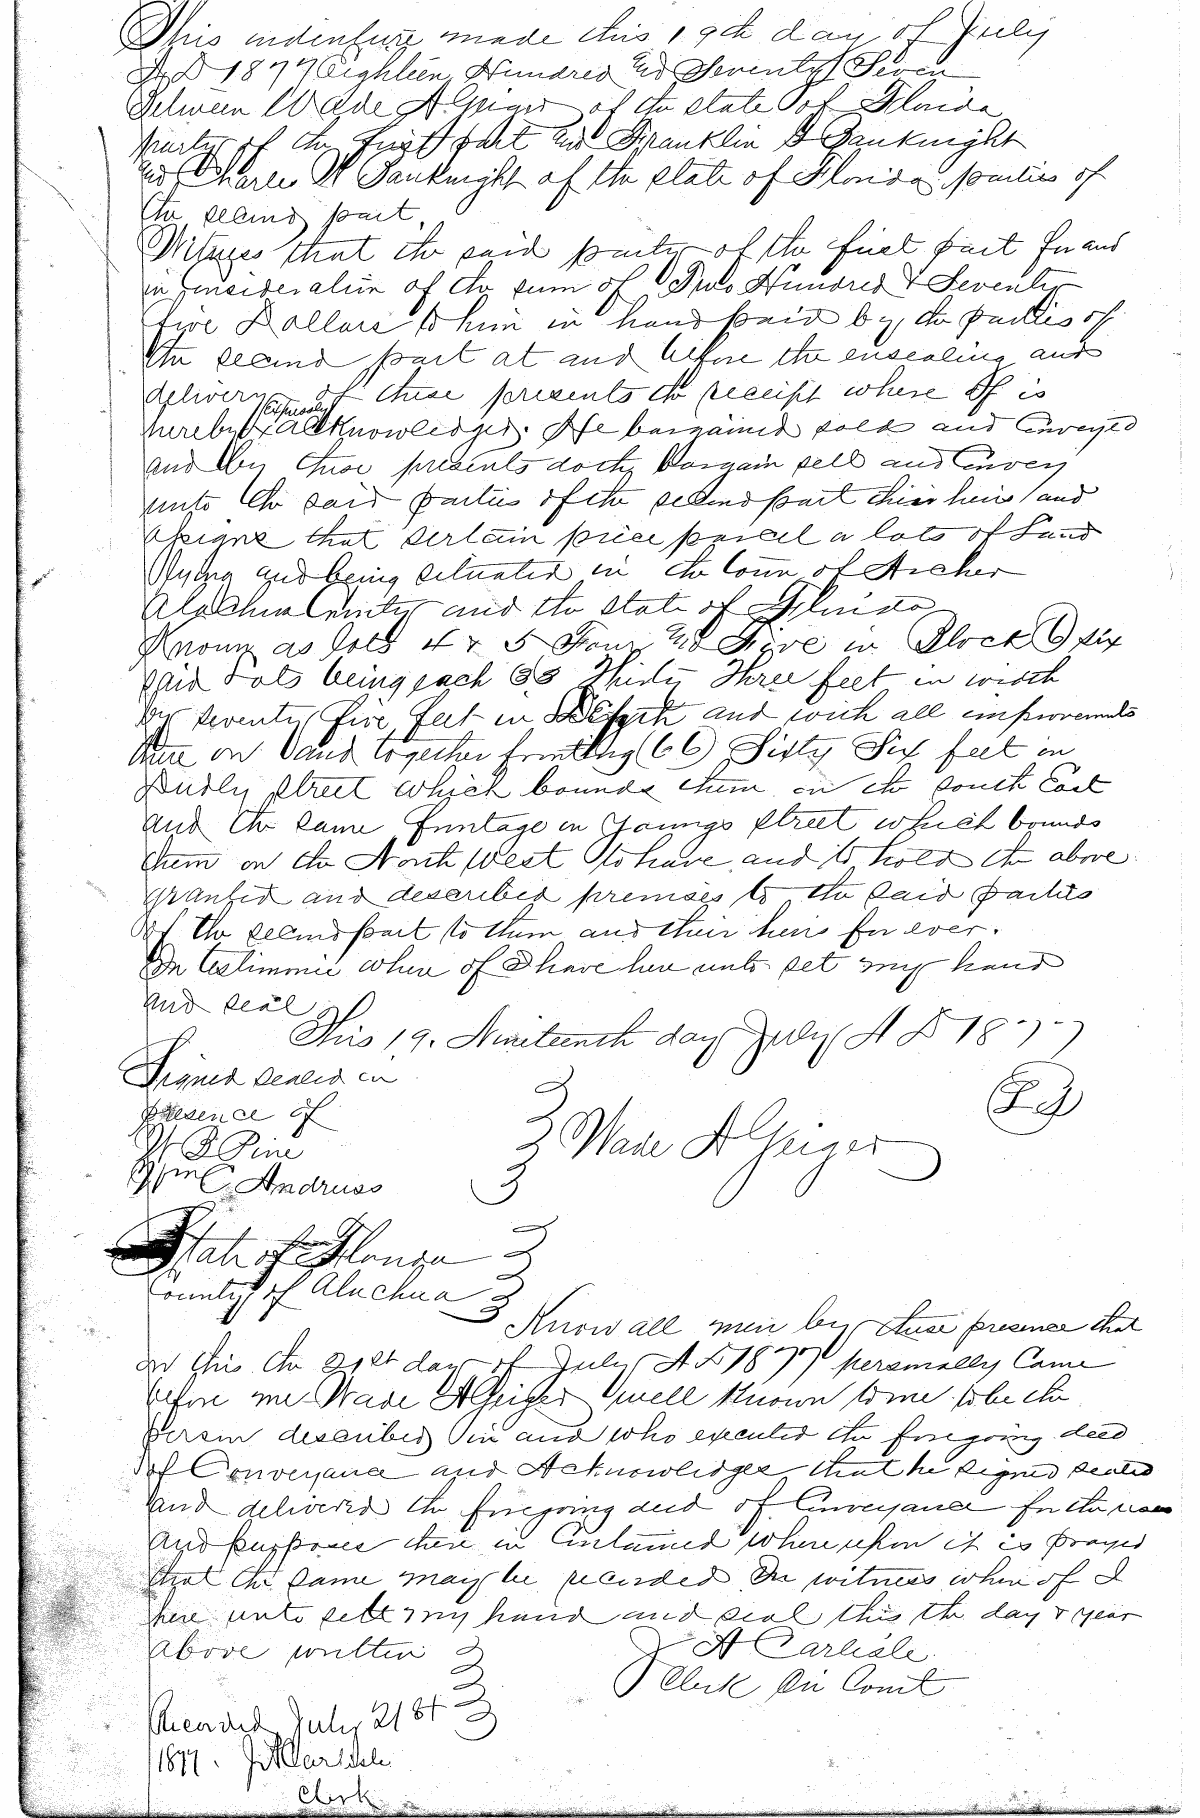 This indenture made this 19th day of July
A D 1877 Eighteen Hundred and Seventy Seven
Between Wade A Geiger of the state of Florida
party of the first part and Franklin Sanknight
and Charles W Sanknight of the state of Florida parties of
the second part
Witness that the said party of the first part for and
in Consideration of the sum of Two Hundred & Seventy
five Dollars to him in hand paid by the parties of
the second part at and before the ensealing and
delivery of these presents the receipt where of is
hereby Expressly acknowledged. He bargained sold and Conveyed
and by these presents doth bargain sell and Convey
unto the said parties of the second part their heirs and
assigns that certain piece parcel a lots of Land
lying and being situated in the town of Archer
Alachua County and the state of Florida
Known as lots 4 & 5 Four and Five in Block 6 six
said Lots being each 33 Thirty Three feet in width
by seventy five feet in Depth and with all improvements
there on and together fronting (66) Sixty Six feet in
Dudly street which bounds them on the south East
and the same frontage on Youngs street which bounds
them on the North West to have and to hold the above
granted and described premises to the said parties
of the second part to them and their heirs for ever.
In testimonie where of I have here unto set my hand
and seal
This 19. Nineteenth day July A D 1877
Signed sealed in
presence of
Pine
Wm C. Andruss
Wade A Geiger
State of Florida
County of Alachua
Know all men by these presence that
on this the 21st day of July A D 1877 personally Came
before me Wade A Geiger well Known to me to be the
person described in and who executed the foregoing deed
of Conveyance and Acknowledges that he signed sealed
and delivered the foregoing deed of Conveyance for the uses
and purposes there in Contained where upon it is prayed
that the same may be recorded In witness where of I
here unto sett my hand and seal this the day & year
above written
J A Carlisle
Clerk Cir Court
Recorded July 21st
1877. J A Carlisle
Clerk